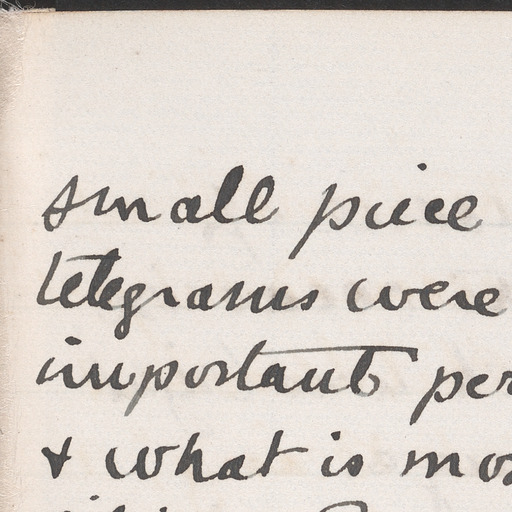 small piece
telegrams were
important per
& what is mos